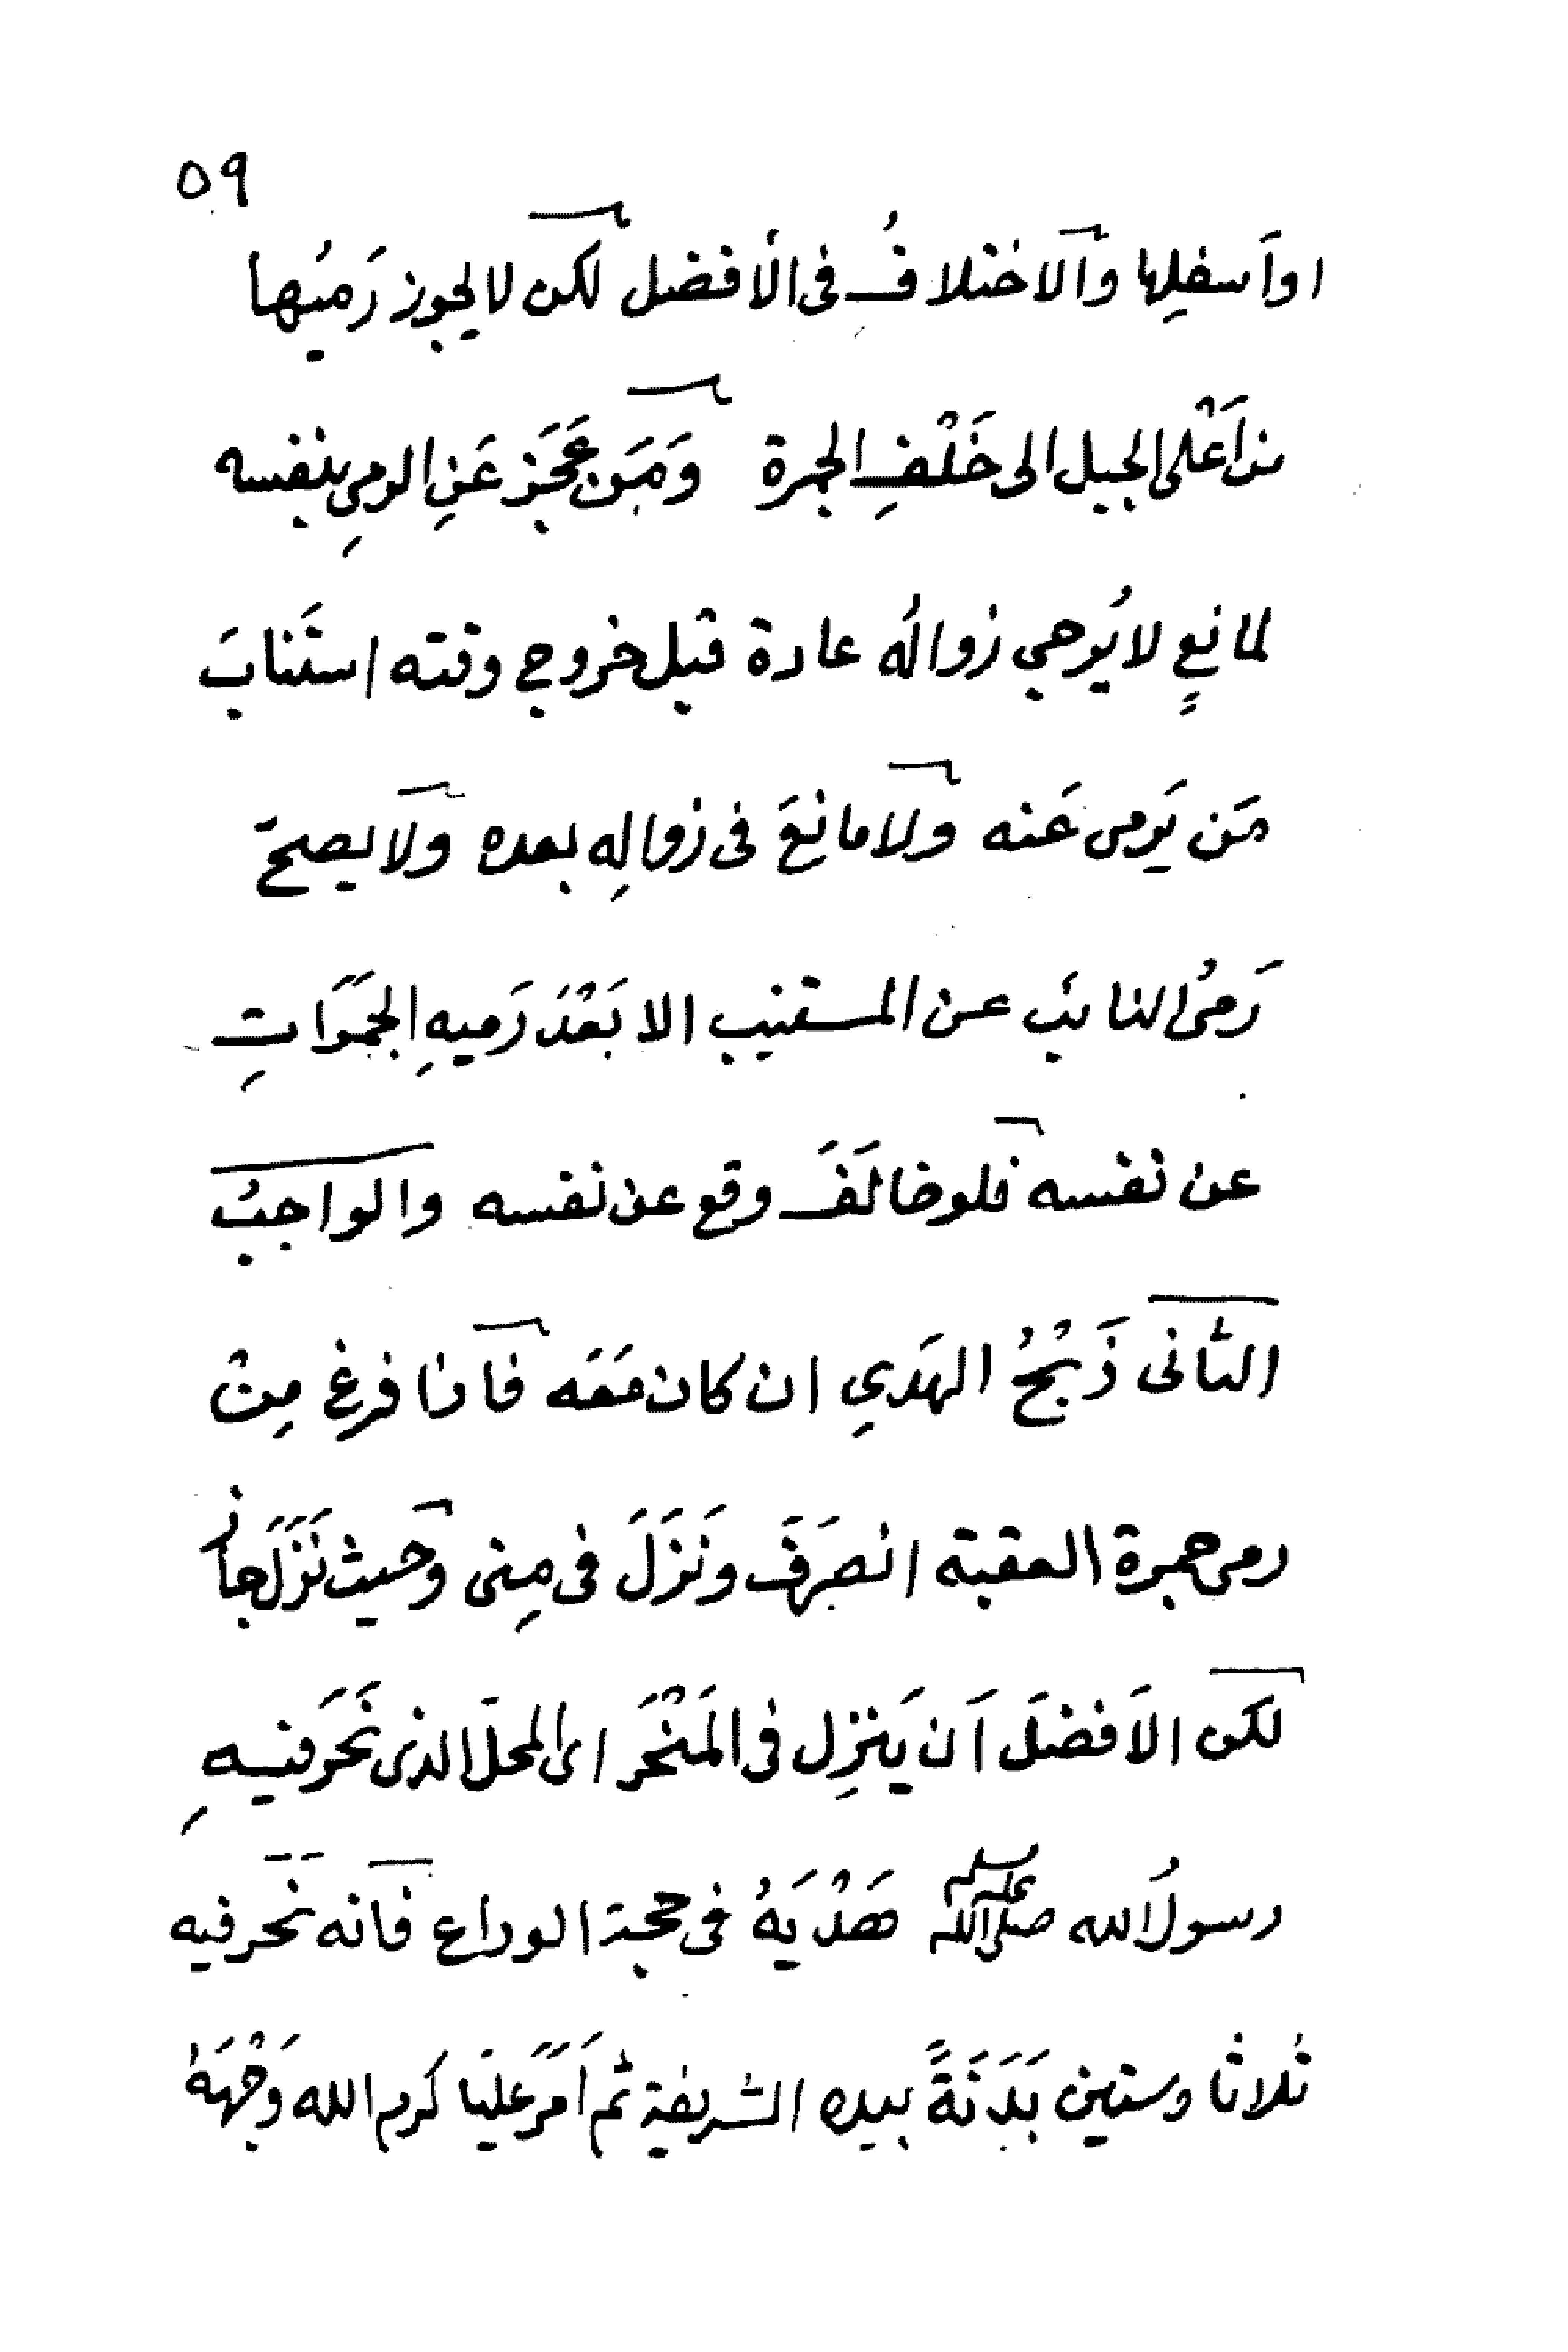 ٥٩
او اَسفلِها والاختلافُ فى الأفضل لكن لا يجوز رَميُها
من اَعْلى الجبل الى خَلْفِ الجمرة وَمَن عَجَز عَنِ الرمىِ بنفسه
لمانعٍ لا يُرجى زوالُه عادة قبل خروج وقته استنابَ
مَن يَرمى عَنه ولا مانعَ فى زوالِه بعده ولا يصحّ
رَمىُ النائب عن المستنيب الا بَعْدَ رَميهِ الجَمَرَاتِ
عن نفسه فلو خالَفَ وقع عن نفسه والواجبُ
الثانى ذَبْحُ الهَديِ ان كان مَعَه فاذا فرغ مِنْ
رمى جمرة العقبة انصَرَفَ ونَزَلَ فى مِنى وحيث نَزَلَ جاز
لكن الاَفضلَ اَن يَنزِل فى المَنْحَر اى المحلّ الذى نَحَر فيهِ
رسولُ الله صلى الله عليه وسلم هَدْيَهُ فى حجة الوداع فانه نَحَر فيه
ثلاثا وستين بَدَنَةً بيده الشريفة ثم اَمَرَ عليّا كرم الله وَجْهَهُ